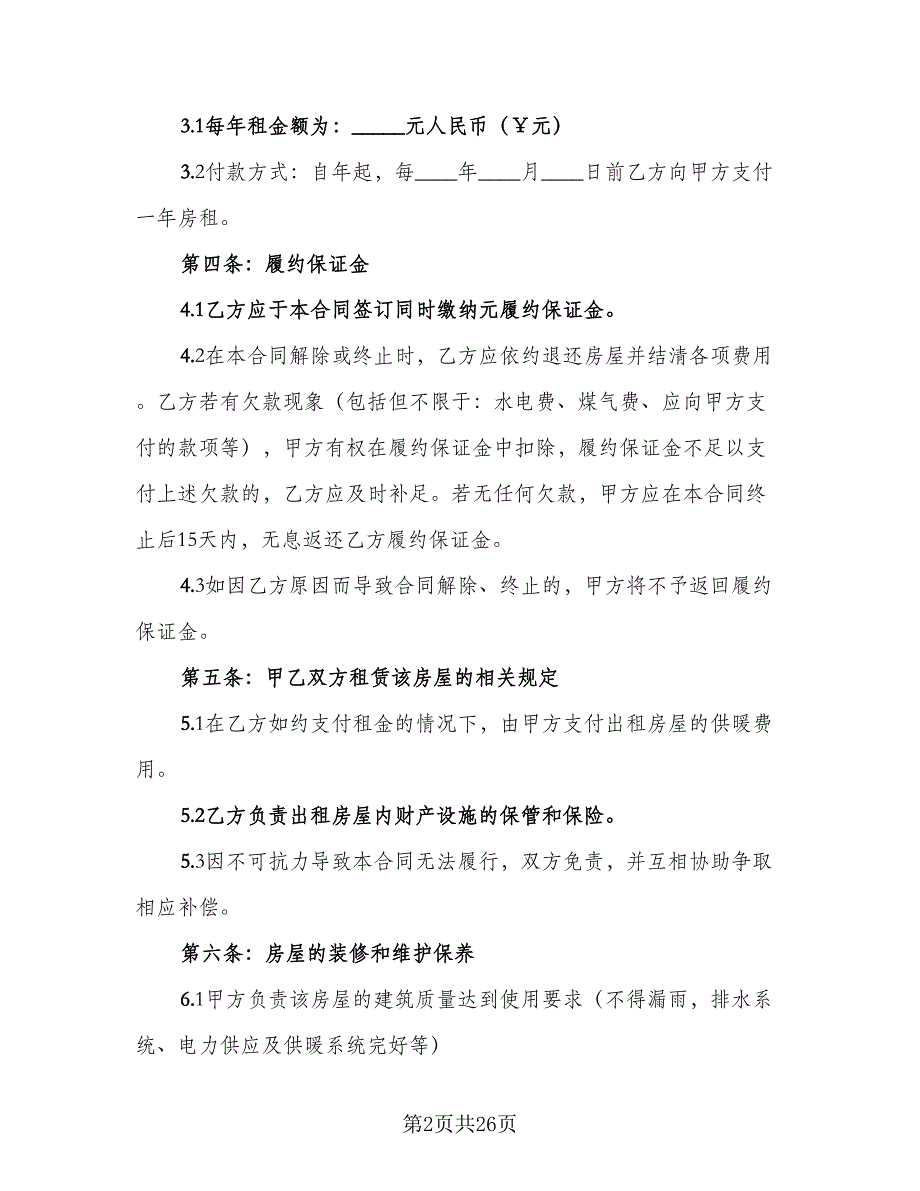 3.1每年租金额为：_____元人民币（￥元）
3.2付款方式：自年起，每____年____月____日前乙方向甲方支付
一年房租。
第四条：履约保证金
4.1乙方应于本合同签订同时缴纳元履约保证金。
4.2在本合同解除或终止时，乙方应依约退还房屋并结清各项费用
。乙方若有欠款现象（包括但不限于：水电费、煤气费、应向甲方支
付的款项等），甲方有权在履约保证金中扣除，履约保证金不足以支
付上述欠款的，乙方应及时补足。若无任何欠款，甲方应在本合同终
止后15天内，无息返还乙方履约保证金。
4.3如因乙方原因而导致合同解除、终止的，甲方将不予返回履约
保证金。
第五条：甲乙双方租赁该房屋的相关规定
5.1在乙方如约支付租金的情况下，由甲方支付出租房屋的供暖费
用。
5.2乙方负责出租房屋内财产设施的保管和保险。
5.3因不可抗力导致本合同无法履行，双方免责，并互相协助争取
相应补偿。
第六条：房屋的装修和维护保养
6.1甲方负责该房屋的建筑质量达到使用要求（不得漏雨，排水系
统、电力供应及供暖系统完好等）
第2页共26页